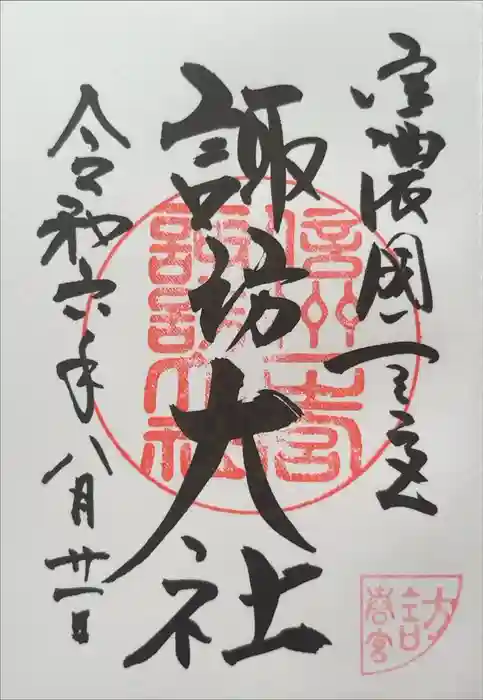 信濃國一之宮
諏訪大社
令和六年八月廿一日
信州一宮
諏訪大社